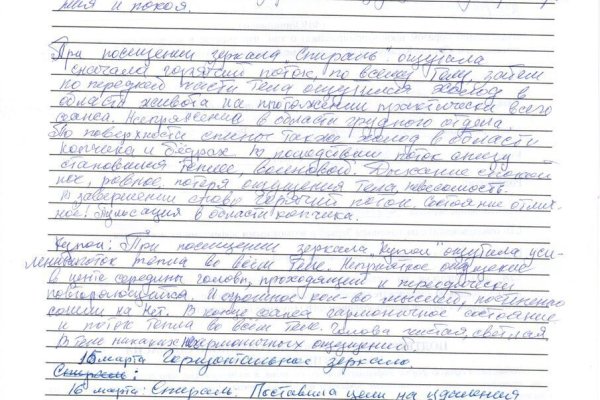 мия и покоя.
При посещении зеркала "Спираль" ощутила
сначала горячий поток, по всему телу, затем
по передней части тела ощущался холод в
области живота на протяжении практически всего
сеанса. Напряжение в области грудного отдела.
По поверхности спины также холод в области
копчика и бедрах. В последствии поток снизу
становился теплее, волновой. Дыхание спокой
ное, ровное, потеря ощущения тела, невесомость.
В завершении снова горячий поток. Состояние отлич-
ное. Пульсация в области копчика.
Купол: При посещении зеркала "Купол" ощутила уси-
ление поток тепла во всем теле. Неприятное ощущение
в центе середины головы, проходящий и периодически
повторяющийся. И огромное кол-во мыслей, постепенно
сошли на нет. В конце сеанса гармоничное состояние
и поток тепла во всем теле. Голова чистая, светлая
В теле никаких гармоничных ощущений.
15 марта Горизонтальное зеркало.
Спираль:
16 марта: Спираль. Поставила цели на удаления